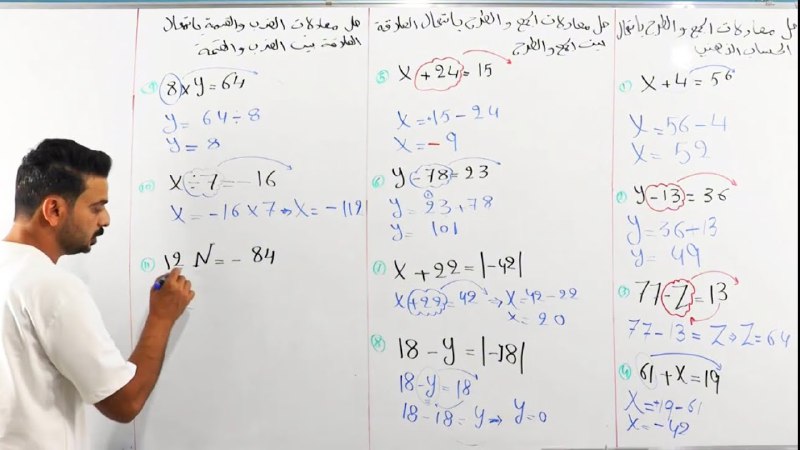 حل معادلات الجمع و الطرح باستعمال
الحساب الذهني
1 X + 4 = 56
X = 56 - 4
X = 52
2 y - 13 = 36
y = 36 - 13
y = 49
3 77 - Z = 13
77 - 13 = Z → Z = 64
4 61 + X = 19
X = +19 - 61
X = -42
حل معادلات الجمع و الطرح باستعمال العلاقة
بين الجمع و الطرح
5 X + 24 = 15
X = +15 - 24
X = -9
6 y - 78 = 23
y = 23 + 78
y = 101
7 X + 22 = |-42|
X + 22 = 42 → X = 42 - 22
X = 20
8 18 - y = |-18|
18 - y = 18
18 - 18 = y → y = 0
حل معادلات الضرب والقسمة باستعمال
العلاقة بين الضرب والقسمة
9 8 × y = 64
y = 64 ÷ 8
y = 8
10 X ÷ 7 = -16
X = -16 × 7 → X = -112
11 12 N = - 84